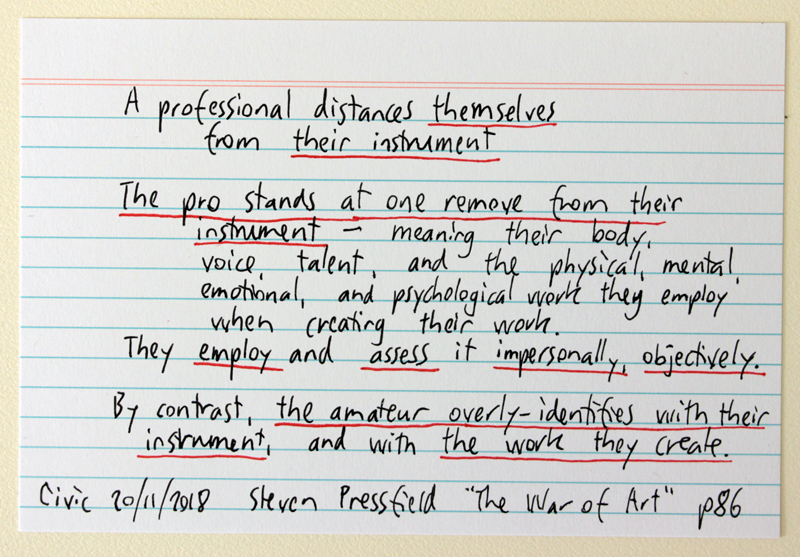 A professional distances themselves
from their instrument
The pro stands at one remove from their
instrument – meaning their body,
voice, talent, and the physical, mental,
emotional, and psychological work they employ
when creating their work.
They employ and assess it impersonally, objectively.
By contrast, the amateur overly-identifies with their
instrument, and with the work they create.
Civic 20/11/2018 Steven Pressfield "The War of Art" p86